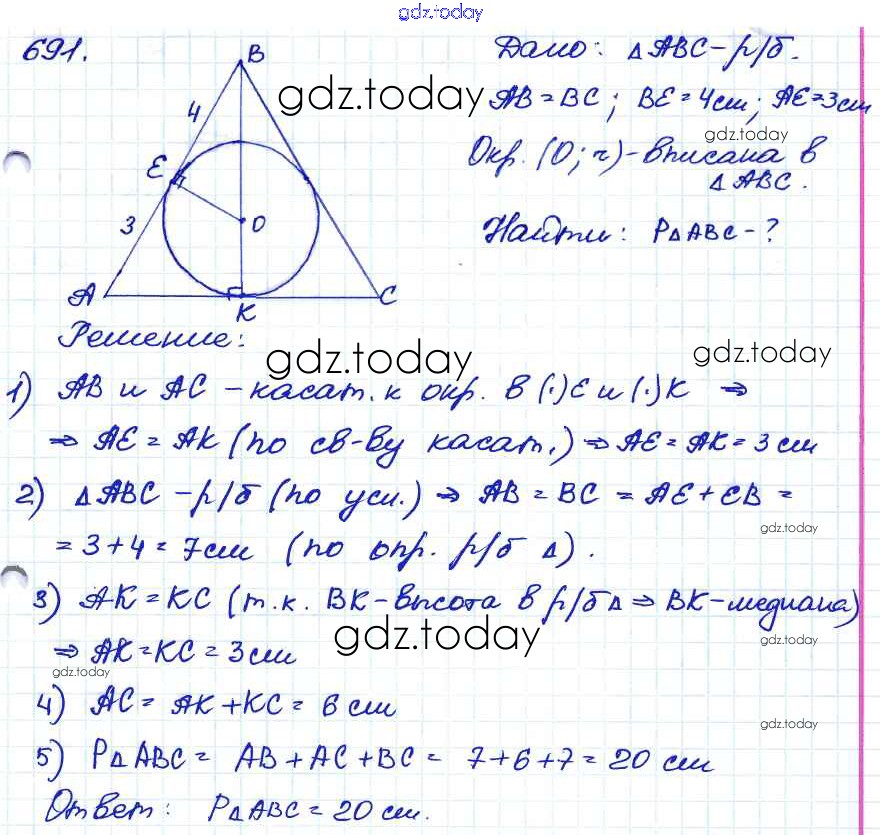 gdz.today
691.
B
4
E
3
O
A
K
C
Дано: △ABC - р/б.
AB = BC; BE = 4см; AE = 3см
gdz.today
gdz.today
Окр. (O; r) - вписана в
△ABC.
Найти: P△ABC - ?
Решение:
gdz.today
gdz.today
1) AB и AC - касат. к окр. в (·)E и (·)K ⇒
⇒ AE = AK (по св-ву касат.) ⇒ AE = AK = 3 см
2) △ABC - р/б (по усл.) ⇒ AB = BC = AE + EB =
gdz.today
= 3 + 4 = 7см (по опр. р/б △).
3) AK = KC (т.к. BK - высота в р/б △ ⇒ BK - медиана)
gdz.today
gdz.today
⇒ AK = KC = 3 см
gdz.today
4) AC = AK + KC = 6 см
gdz.today
5) P△ABC = AB + AC + BC = 7 + 6 + 7 = 20 см
Ответ: P△ABC = 20 см.